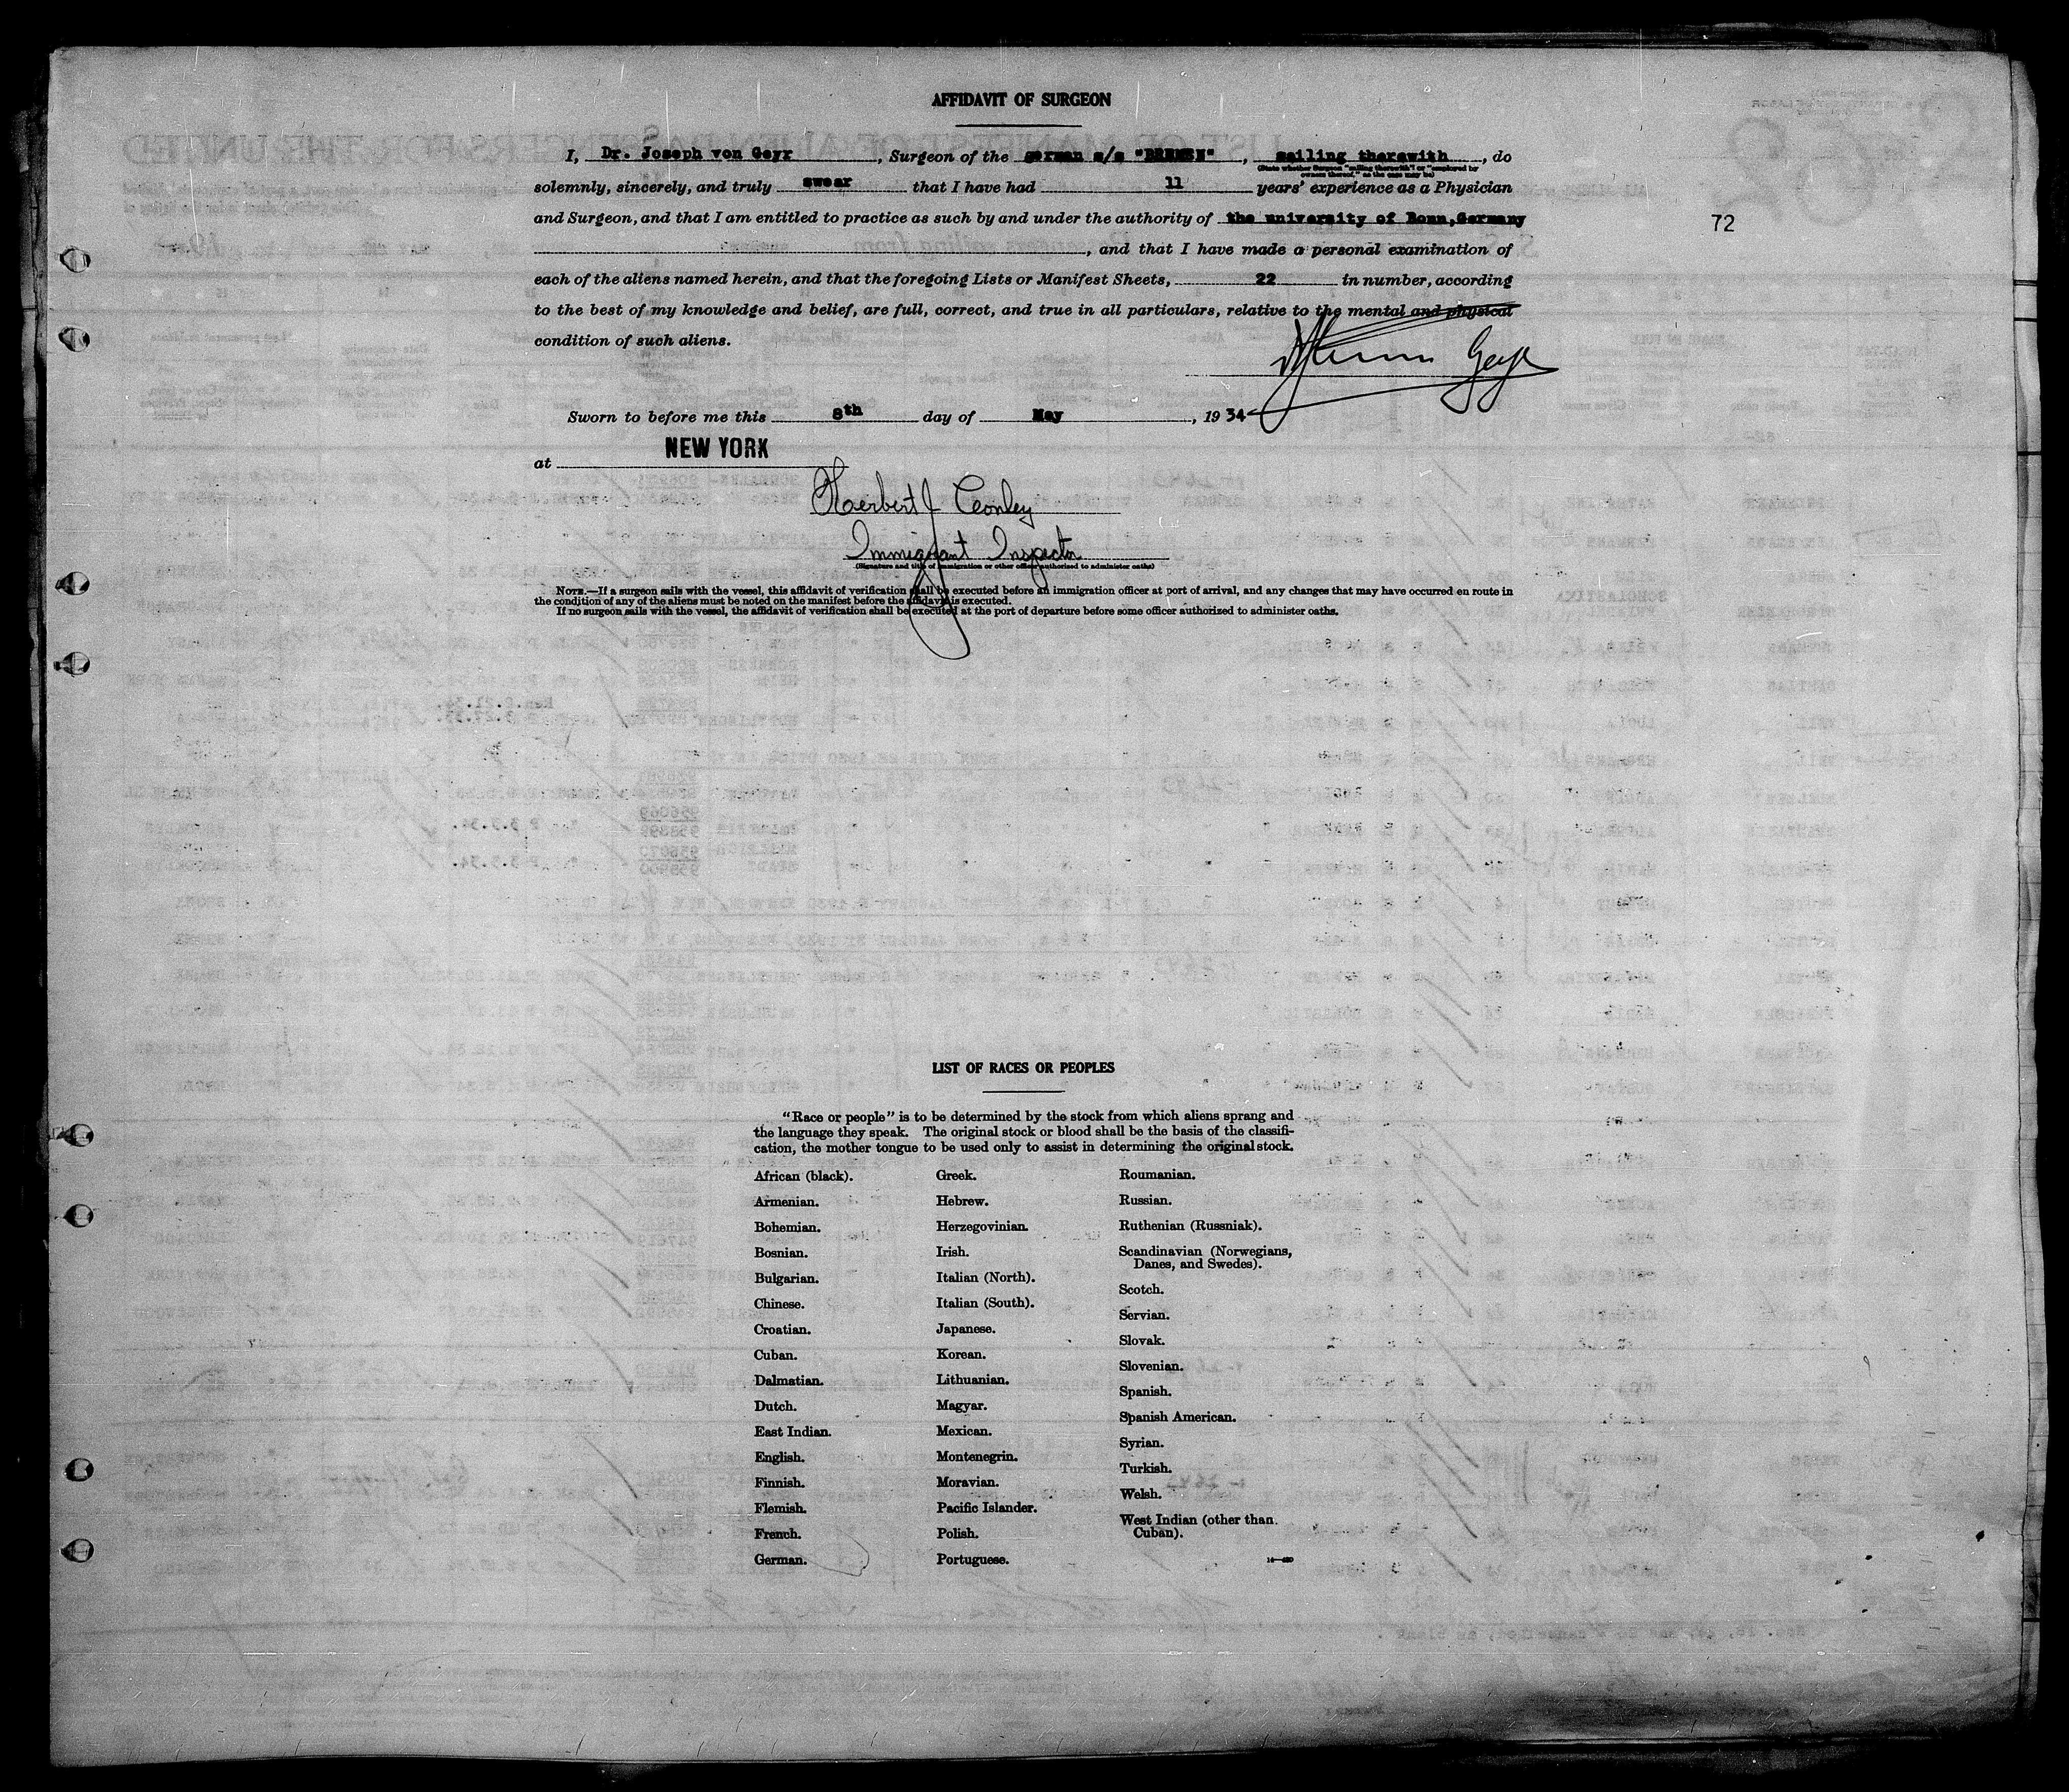 AFFIDAVIT OF SURGEON
I, Dr. Joseph von Geyr, Surgeon of the german s/s "BREMEN", sailing therewith, do
(State whether Surgeon "sailing therewith" or "employed by owners thereof," as the case may be)
solemnly, sincerely, and truly swear that I have had 11 years' experience as a Physician
and Surgeon, and that I am entitled to practice as such by and under the authority of the university of Bonn, Germany
72
, and that I have made a personal examination of
each of the aliens named herein, and that the foregoing Lists or Manifest Sheets, 22 in number, according
to the best of my knowledge and belief, are full, correct, and true in all particulars, relative to the mental and physical
condition of such aliens.
Geyr
Sworn to before me this 8th day of May, 1934
at NEW YORK
Herbert J Conley
Immigrant Inspector
(Signature and title of immigration or other officer authorized to administer oaths)
NOTE.—If a surgeon sails with the vessel, this affidavit of verification shall be executed before an immigration officer at port of arrival, and any changes that may have occurred en route in
the condition of any of the aliens must be noted on the manifest before the affidavit is executed.
If no surgeon sails with the vessel, the affidavit of verification shall be executed at the port of departure before some officer authorized to administer oaths.
LIST OF RACES OR PEOPLES
"Race or people" is to be determined by the stock from which aliens sprang and
the language they speak. The original stock or blood shall be the basis of the classifi-
cation, the mother tongue to be used only to assist in determining the original stock.
African (black).
Armenian.
Bohemian.
Bosnian.
Bulgarian.
Chinese.
Croatian.
Cuban.
Dalmatian.
Dutch.
East Indian.
English.
Finnish.
Flemish.
French.
German.
Greek.
Hebrew.
Herzegovinian.
Irish.
Italian (North).
Italian (South).
Japanese.
Korean.
Lithuanian.
Magyar.
Mexican.
Montenegrin.
Moravian.
Pacific Islander.
Polish.
Portuguese.
Roumanian.
Russian.
Ruthenian (Russniak).
Scandinavian (Norwegians,
Danes, and Swedes).
Scotch.
Servian.
Slovak.
Slovenian.
Spanish.
Spanish American.
Syrian.
Turkish.
Welsh.
West Indian (other than
Cuban).